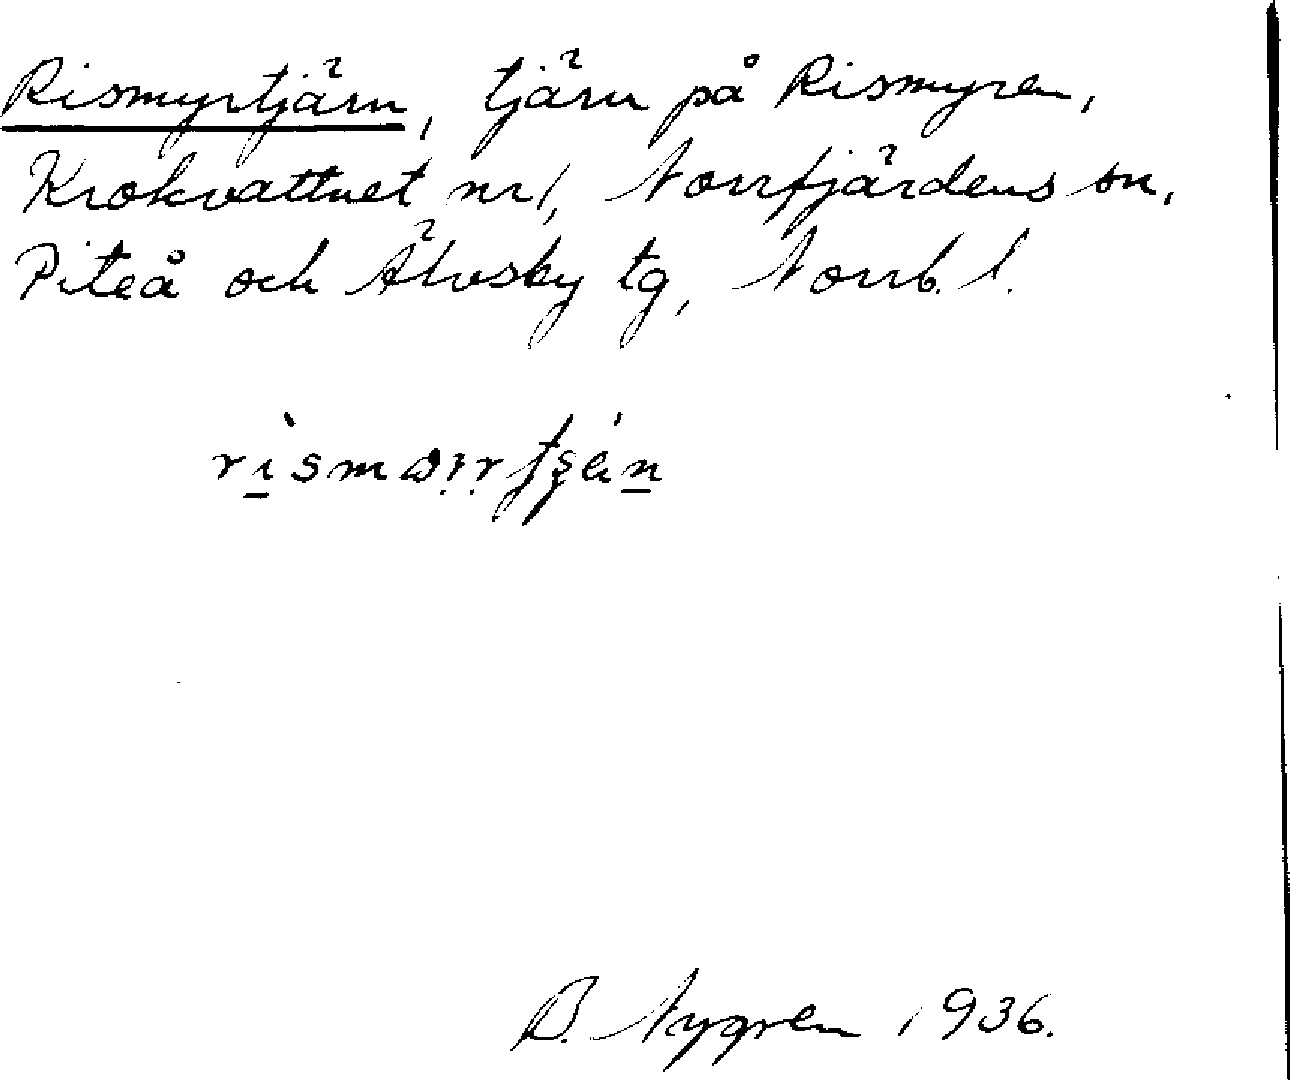 Rismyrtjärn, tjärn på Rismyren,
Krokvattnet nr 1, Norrfjärdens sn,
Piteå och Älvsby tg, Norrb. l.
B. Nygren 1936.